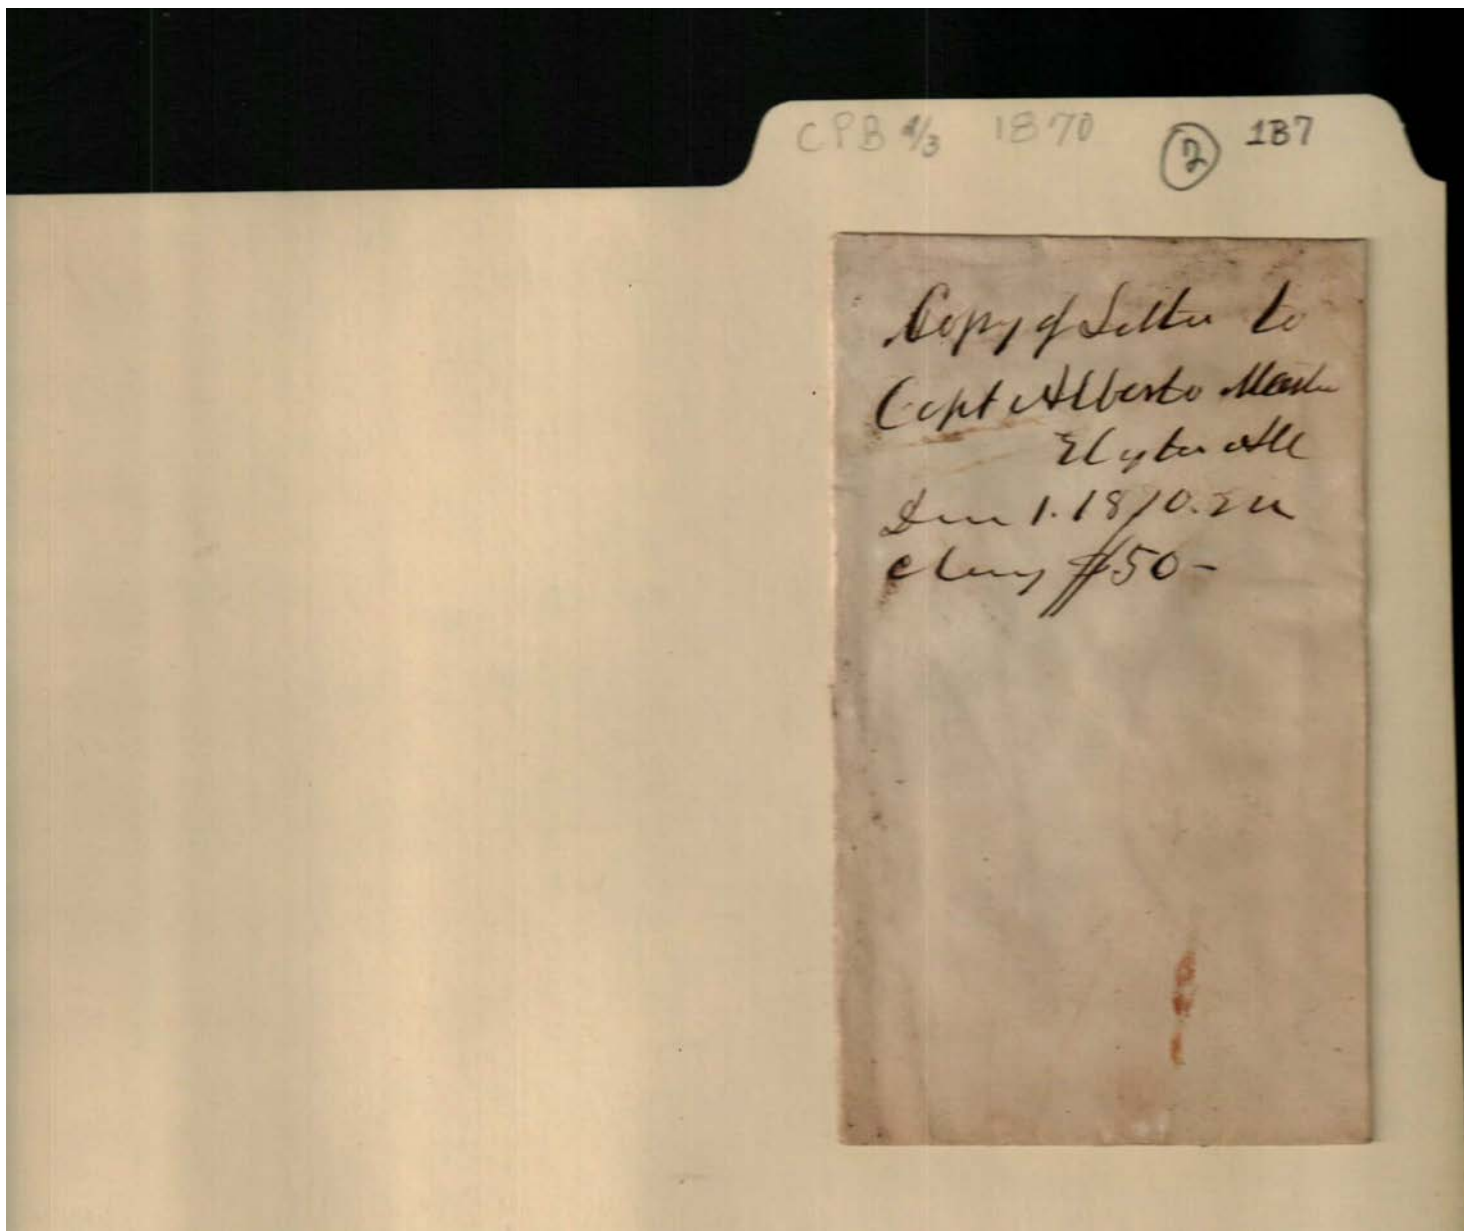 CPB 4/3 1870 2 1B7
Copy of Letter to
Capt Alberto Martin
Elyton Ala
1. 1870. En
closing $50-